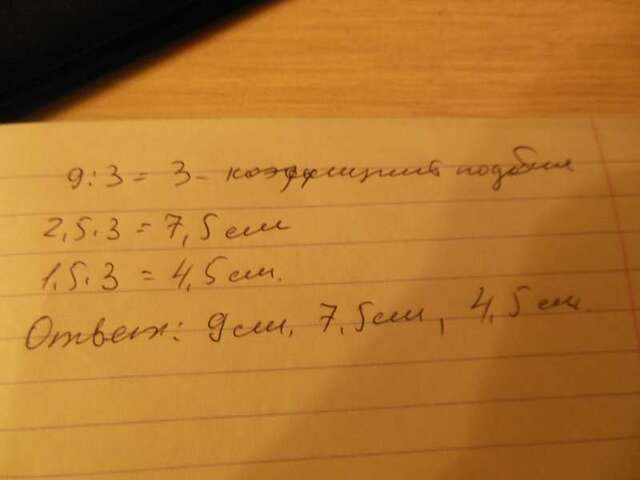 9:3 = 3 - коэффициент подобия
2,5·3 = 7,5 см
1,5·3 = 4,5 см.
Ответ: 9 см, 7,5 см, 4,5 см.